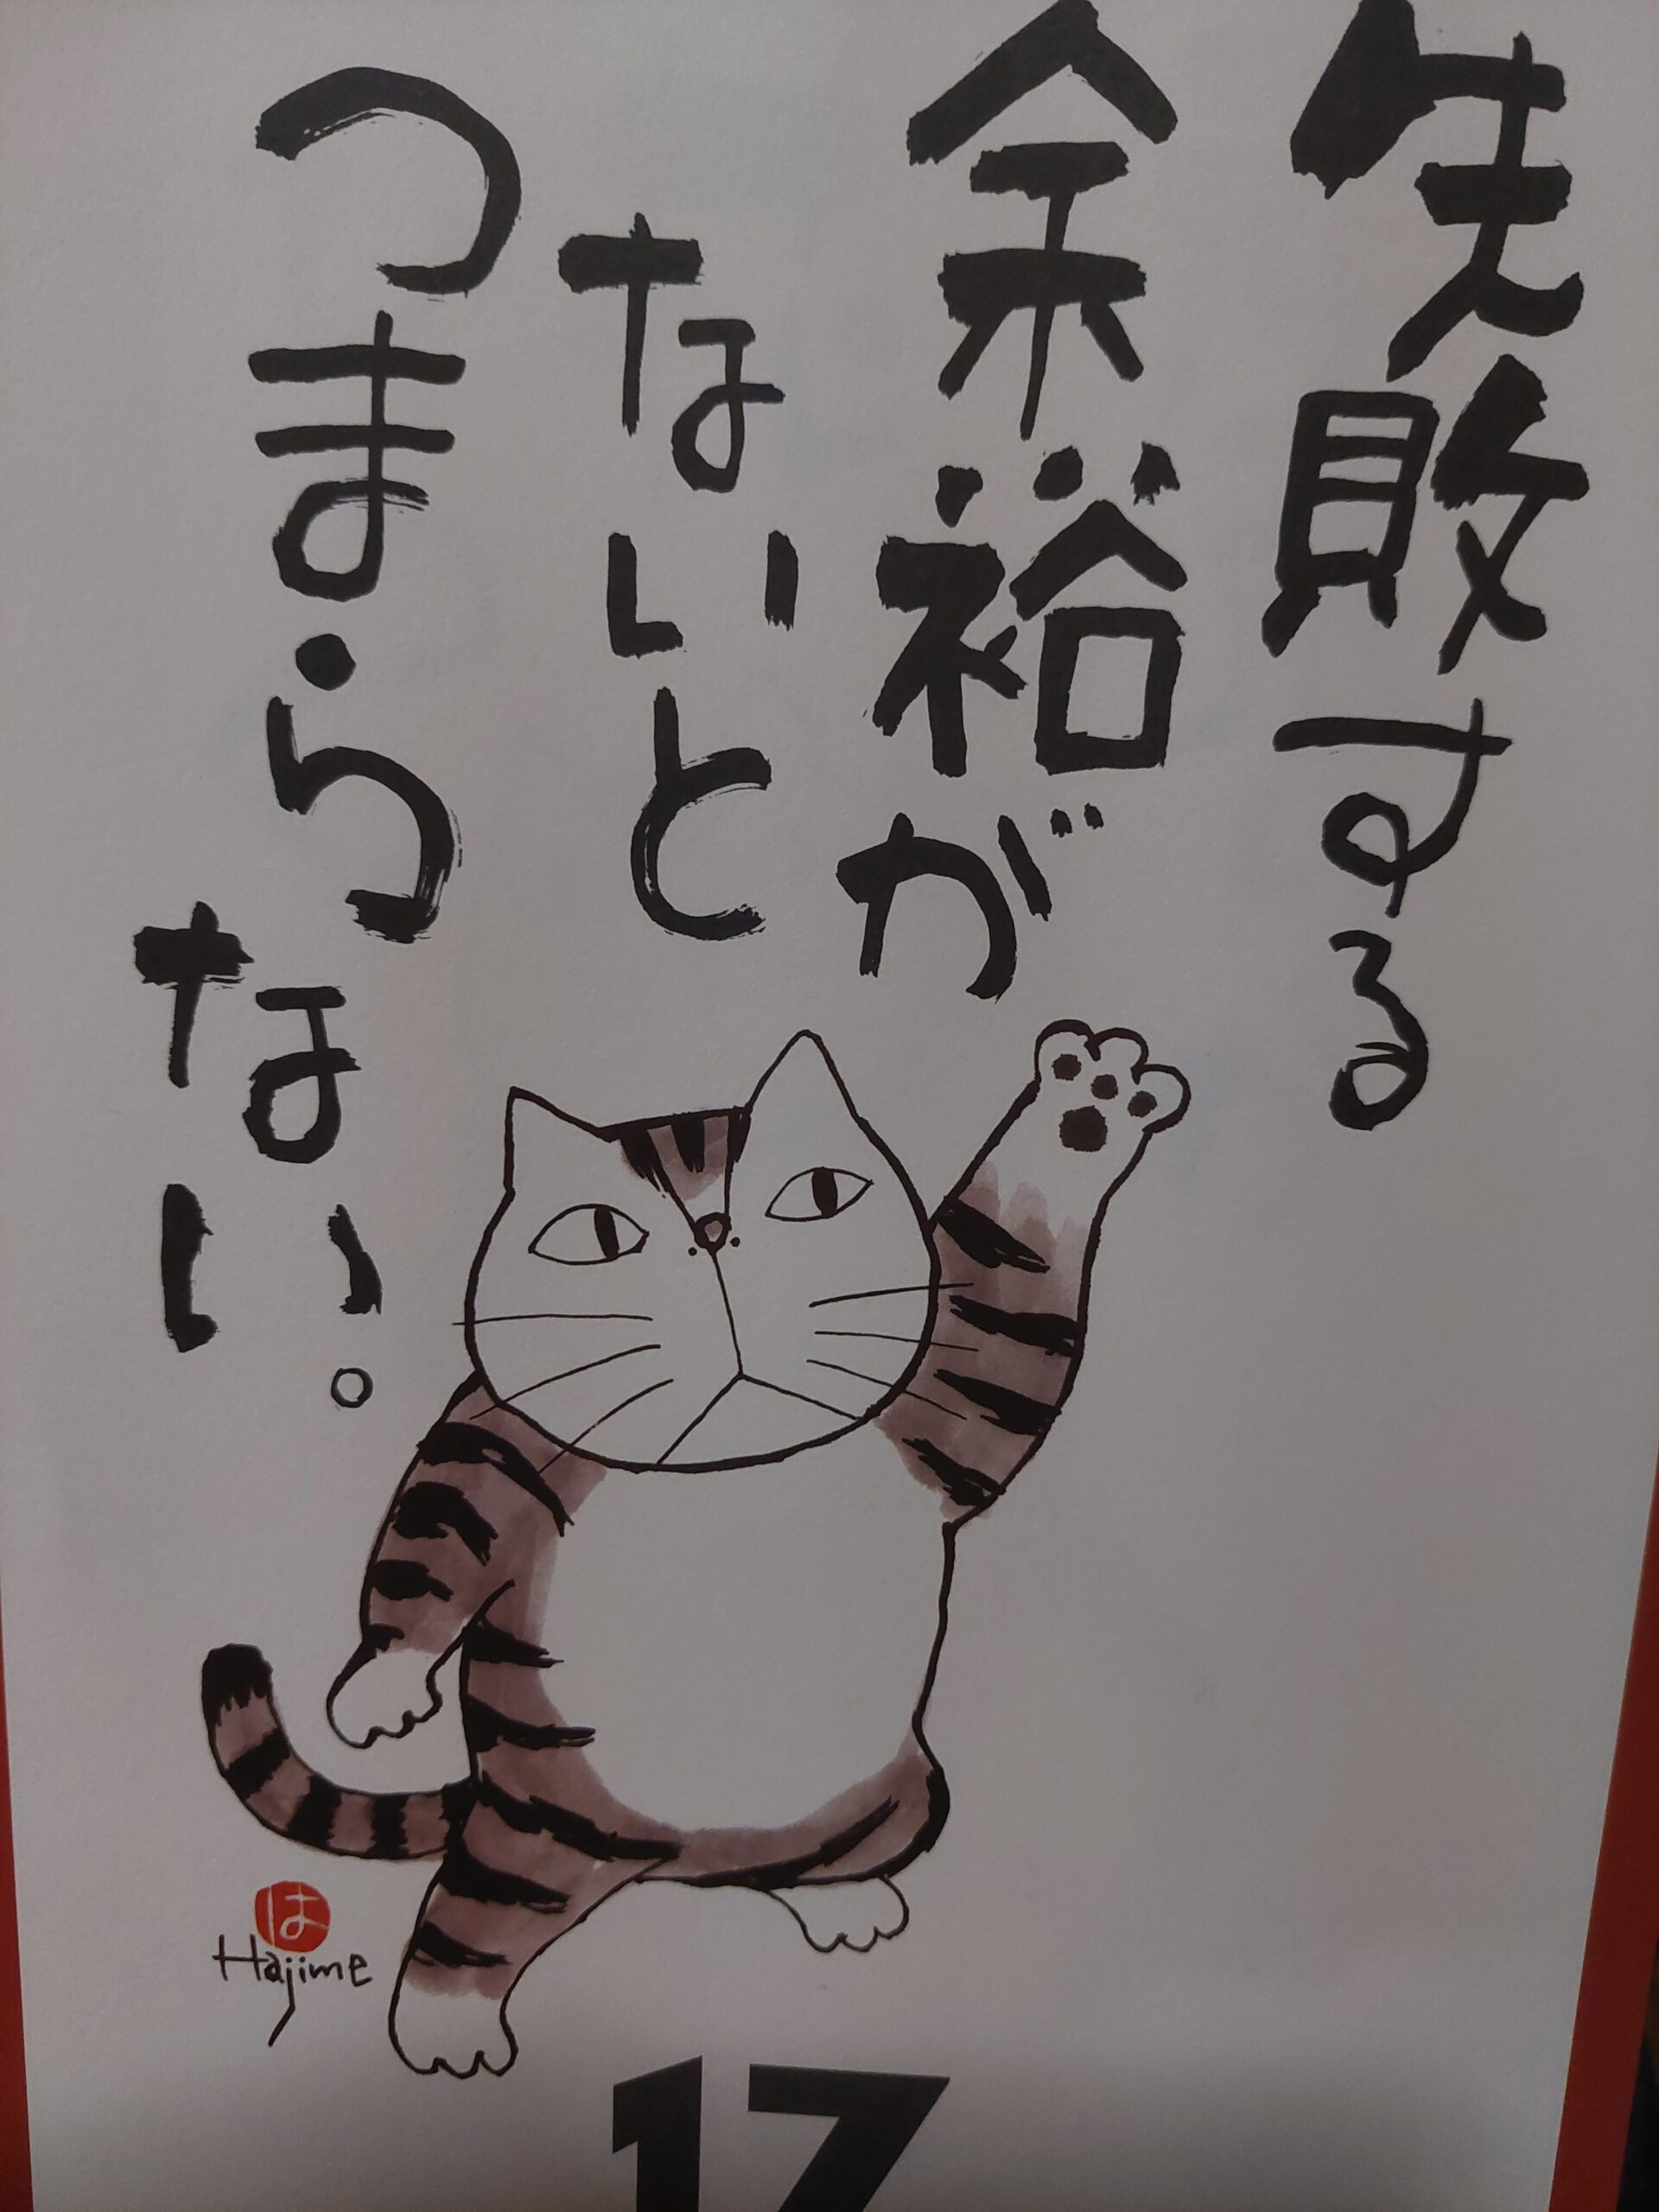 失敗する
余裕が
ないと
つまら
ない。
は
Hajime
17